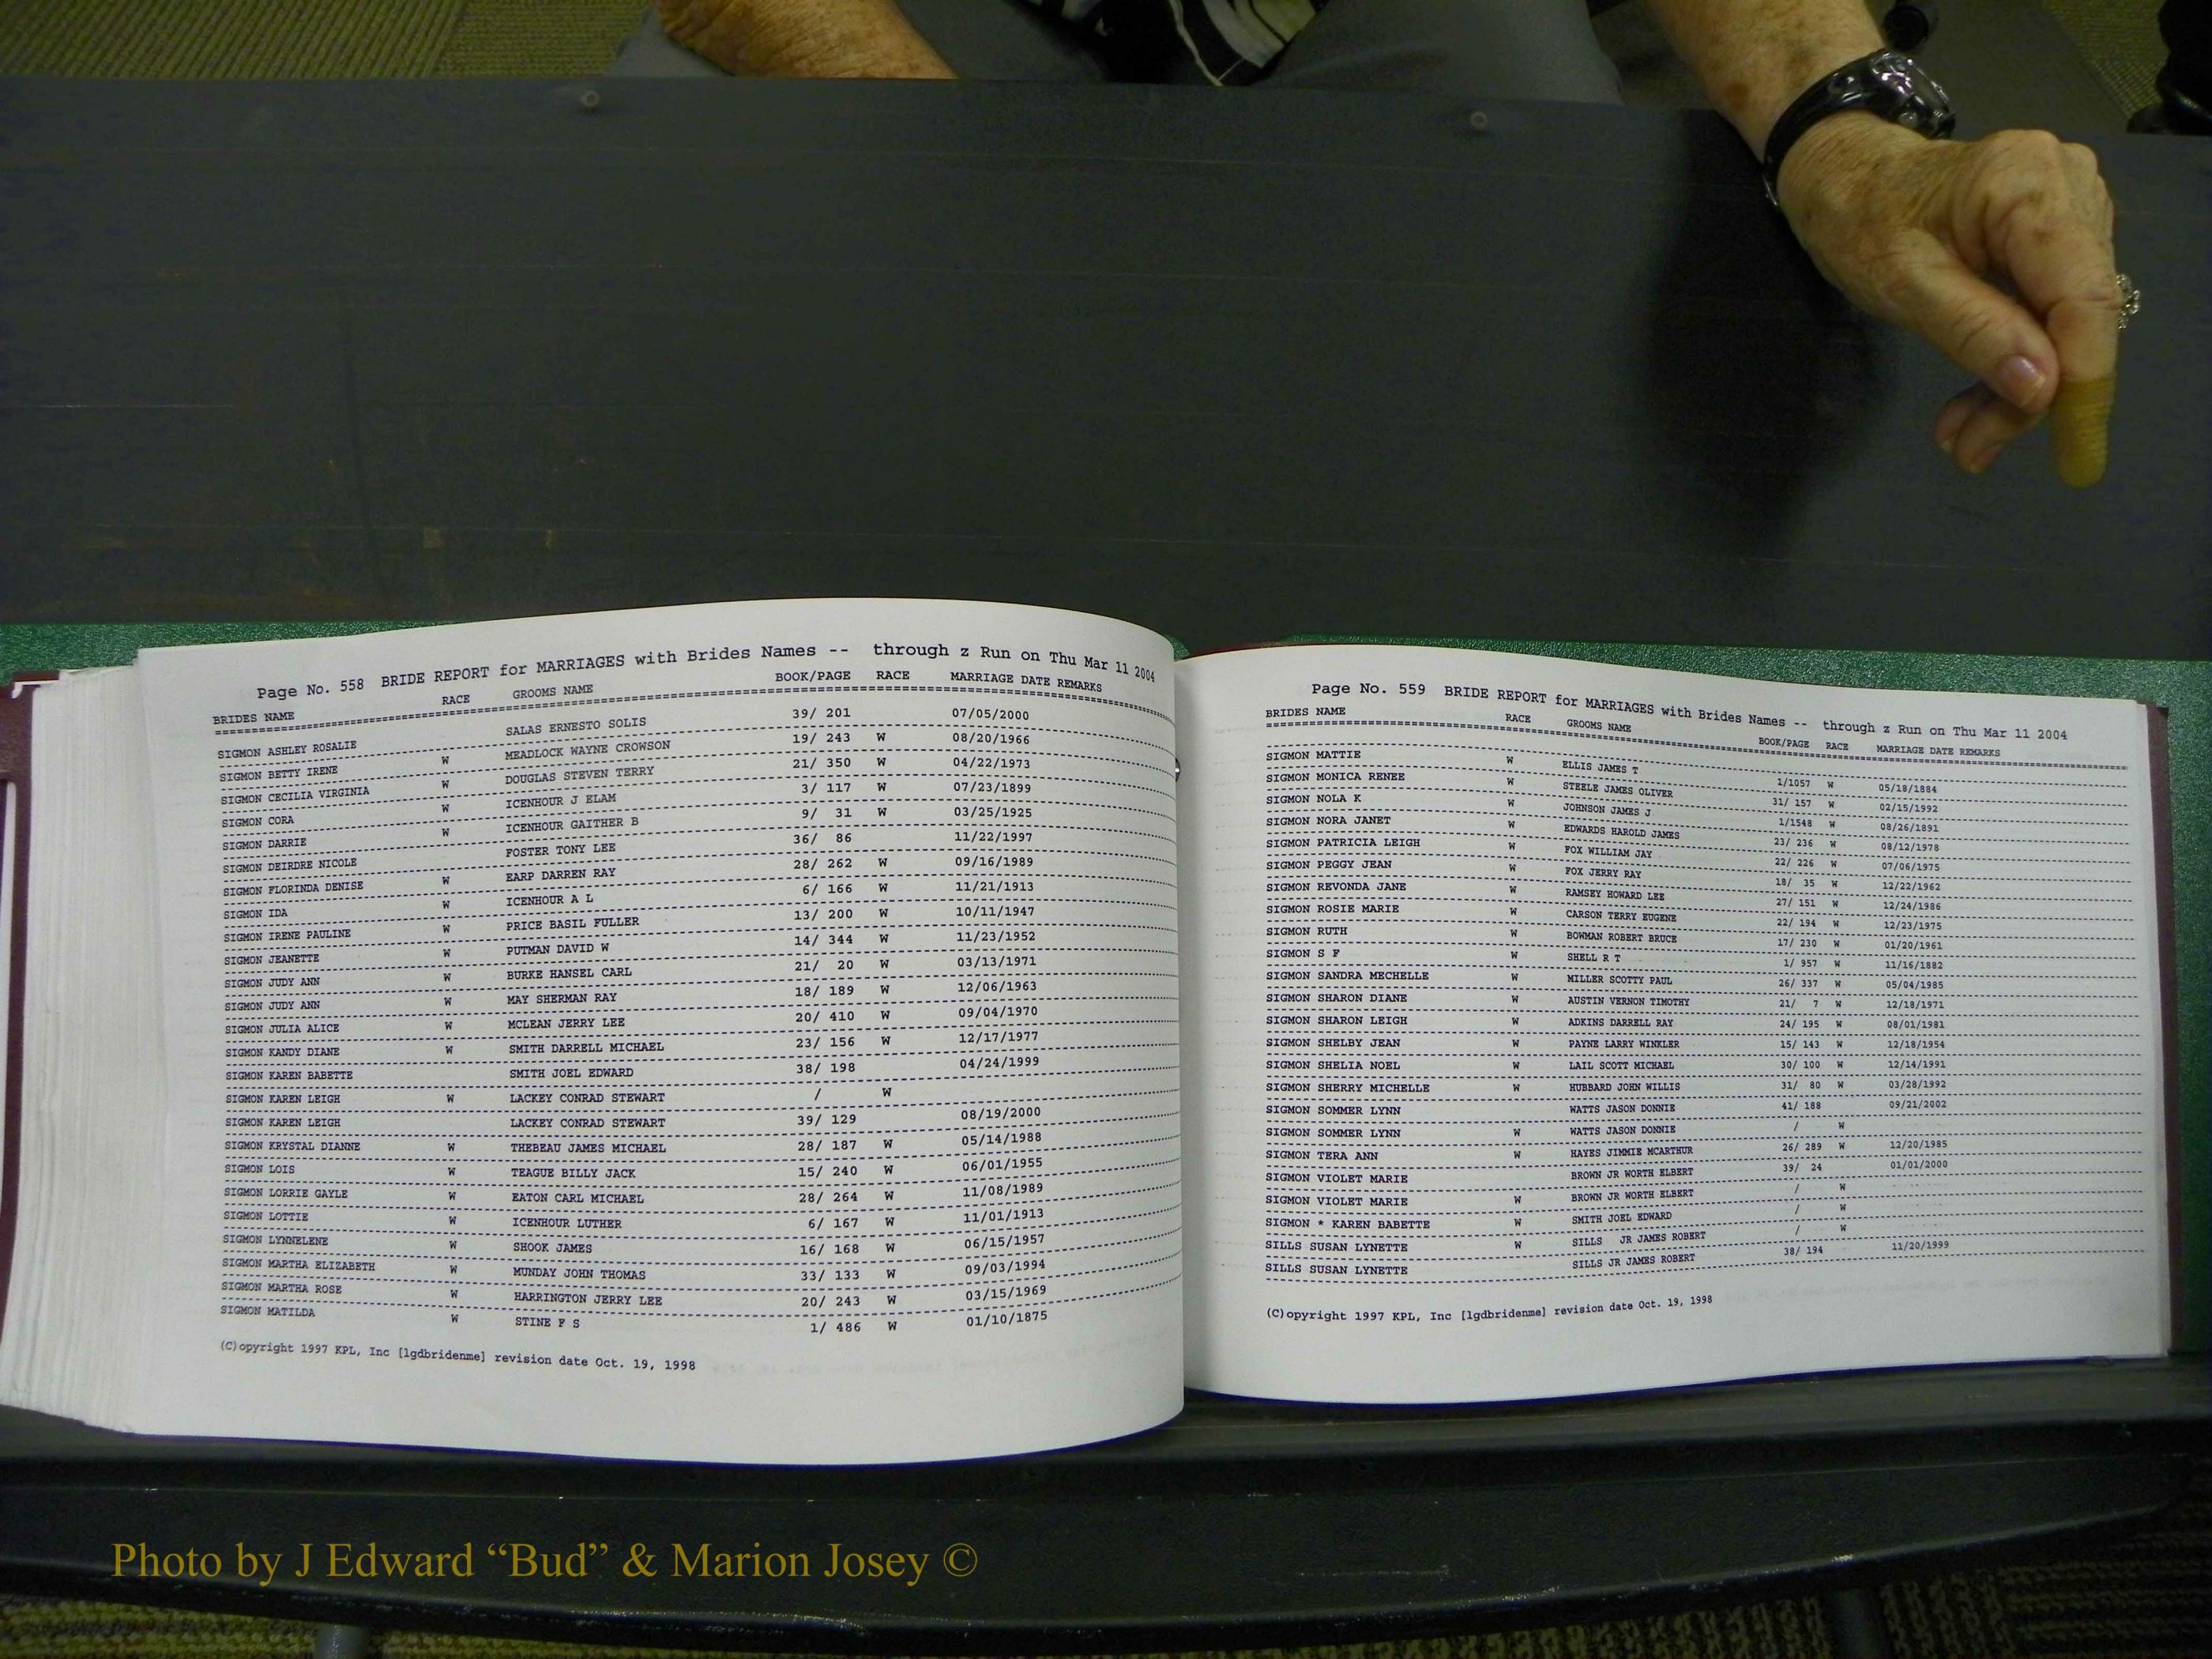 Page No. 558 BRIDE REPORT for MARRIAGES with Brides Names -- through z Run on Thu Mar 11 2004
BRIDES NAME RACE GROOMS NAME BOOK/PAGE RACE MARRIAGE DATE REMARKS
SIGMON ASHLEY ROSALIE SALAS ERNESTO SOLIS 39/ 201 07/05/2000
SIGMON BETTY IRENE W MEADLOCK WAYNE CROWSON 19/ 243 W 08/20/1966
SIGMON CECILIA VIRGINIA W DOUGLAS STEVEN TERRY 21/ 350 W 04/22/1973
SIGMON CORA W ICENHOUR J ELAM 3/ 117 W 07/23/1899
SIGMON DARRIE W ICENHOUR GAITHER B 9/ 31 W 03/25/1925
SIGMON DEIRDRE NICOLE FOSTER TONY LEE 36/ 86 11/22/1997
SIGMON FLORINDA DENISE W EARP DARREN RAY 28/ 262 W 09/16/1989
SIGMON IDA W ICENHOUR A L 6/ 166 W 11/21/1913
SIGMON IRENE PAULINE W PRICE BASIL FULLER 13/ 200 W 10/11/1947
SIGMON JEANETTE W PUTMAN DAVID W 14/ 344 W 11/23/1952
SIGMON JUDY ANN W BURKE HANSEL CARL 21/ 20 W 03/13/1971
SIGMON JUDY ANN W MAY SHERMAN RAY 18/ 189 W 12/06/1963
SIGMON JULIA ALICE W MCLEAN JERRY LEE 20/ 410 W 09/04/1970
SIGMON KANDY DIANE W SMITH DARRELL MICHAEL 23/ 156 W 12/17/1977
SIGMON KAREN BABETTE SMITH JOEL EDWARD 38/ 198 04/24/1999
SIGMON KAREN LEIGH W LACKEY CONRAD STEWART / W
SIGMON KAREN LEIGH LACKEY CONRAD STEWART 39/ 129 08/19/2000
SIGMON KRYSTAL DIANNE W THEBEAU JAMES MICHAEL 28/ 187 W 05/14/1988
SIGMON LOIS W TEAGUE BILLY JACK 15/ 240 W 06/01/1955
SIGMON LORRIE GAYLE W EATON CARL MICHAEL 28/ 264 W 11/08/1989
SIGMON LOTTIE W ICENHOUR LUTHER 6/ 167 W 11/01/1913
SIGMON LYNNELENE W SHOOK JAMES 16/ 168 W 06/15/1957
SIGMON MARTHA ELIZABETH W MUNDAY JOHN THOMAS 33/ 133 W 09/03/1994
SIGMON MARTHA ROSE W HARRINGTON JERRY LEE 20/ 243 W 03/15/1969
SIGMON MATILDA W STINE F S 1/ 486 W 01/10/1875
(C)opyright 1997 KPL, Inc [lgdbridenme] revision date Oct. 19, 1998
Page No. 559 BRIDE REPORT for MARRIAGES with Brides Names -- through z Run on Thu Mar 11 2004
BRIDES NAME RACE GROOMS NAME BOOK/PAGE RACE MARRIAGE DATE REMARKS
SIGMON MATTIE W ELLIS JAMES T 1/1057 W 05/18/1884
SIGMON MONICA RENEE W STEELE JAMES OLIVER 31/ 157 W 02/15/1992
SIGMON NOLA K W JOHNSON JAMES J 1/1548 W 08/26/1891
SIGMON NORA JANET W EDWARDS HAROLD JAMES 23/ 236 W 08/12/1978
SIGMON PATRICIA LEIGH W FOX WILLIAM JAY 22/ 226 W 07/06/1975
SIGMON PEGGY JEAN W FOX JERRY RAY 18/ 35 W 12/22/1962
SIGMON REVONDA JANE W RAMSEY HOWARD LEE 27/ 151 W 12/24/1986
SIGMON ROSIE MARIE W CARSON TERRY EUGENE 22/ 194 W 12/23/1975
SIGMON RUTH W BOWMAN ROBERT BRUCE 17/ 230 W 01/20/1961
SIGMON S F W SHELL R T 1/ 957 W 11/16/1882
SIGMON SANDRA MECHELLE W MILLER SCOTTY PAUL 26/ 337 W 05/04/1985
SIGMON SHARON DIANE W AUSTIN VERNON TIMOTHY 21/ 7 W 12/18/1971
SIGMON SHARON LEIGH W ADKINS DARRELL RAY 24/ 195 W 08/01/1981
SIGMON SHELBY JEAN W PAYNE LARRY WINKLER 15/ 143 W 12/18/1954
SIGMON SHELIA NOEL W LAIL SCOTT MICHAEL 30/ 100 W 12/14/1991
SIGMON SHERRY MICHELLE W HUBBARD JOHN WILLIS 31/ 80 W 03/28/1992
SIGMON SOMMER LYNN WATTS JASON DONNIE 41/ 188 09/21/2002
SIGMON SOMMER LYNN W WATTS JASON DONNIE / W
SIGMON TERA ANN W HAYES JIMMIE MCARTHUR 26/ 289 W 12/20/1985
SIGMON VIOLET MARIE BROWN JR WORTH ELBERT 39/ 24 01/01/2000
SIGMON VIOLET MARIE W BROWN JR WORTH ELBERT / W
SIGMON * KAREN BABETTE W SMITH JOEL EDWARD / W
SILLS SUSAN LYNETTE W SILLS JR JAMES ROBERT / W
SILLS SUSAN LYNETTE SILLS JR JAMES ROBERT 38/ 194 11/20/1999
(C)opyright 1997 KPL, Inc [lgdbridenme] revision date Oct. 19, 1998
Photo by J Edward “Bud” & Marion Josey ©